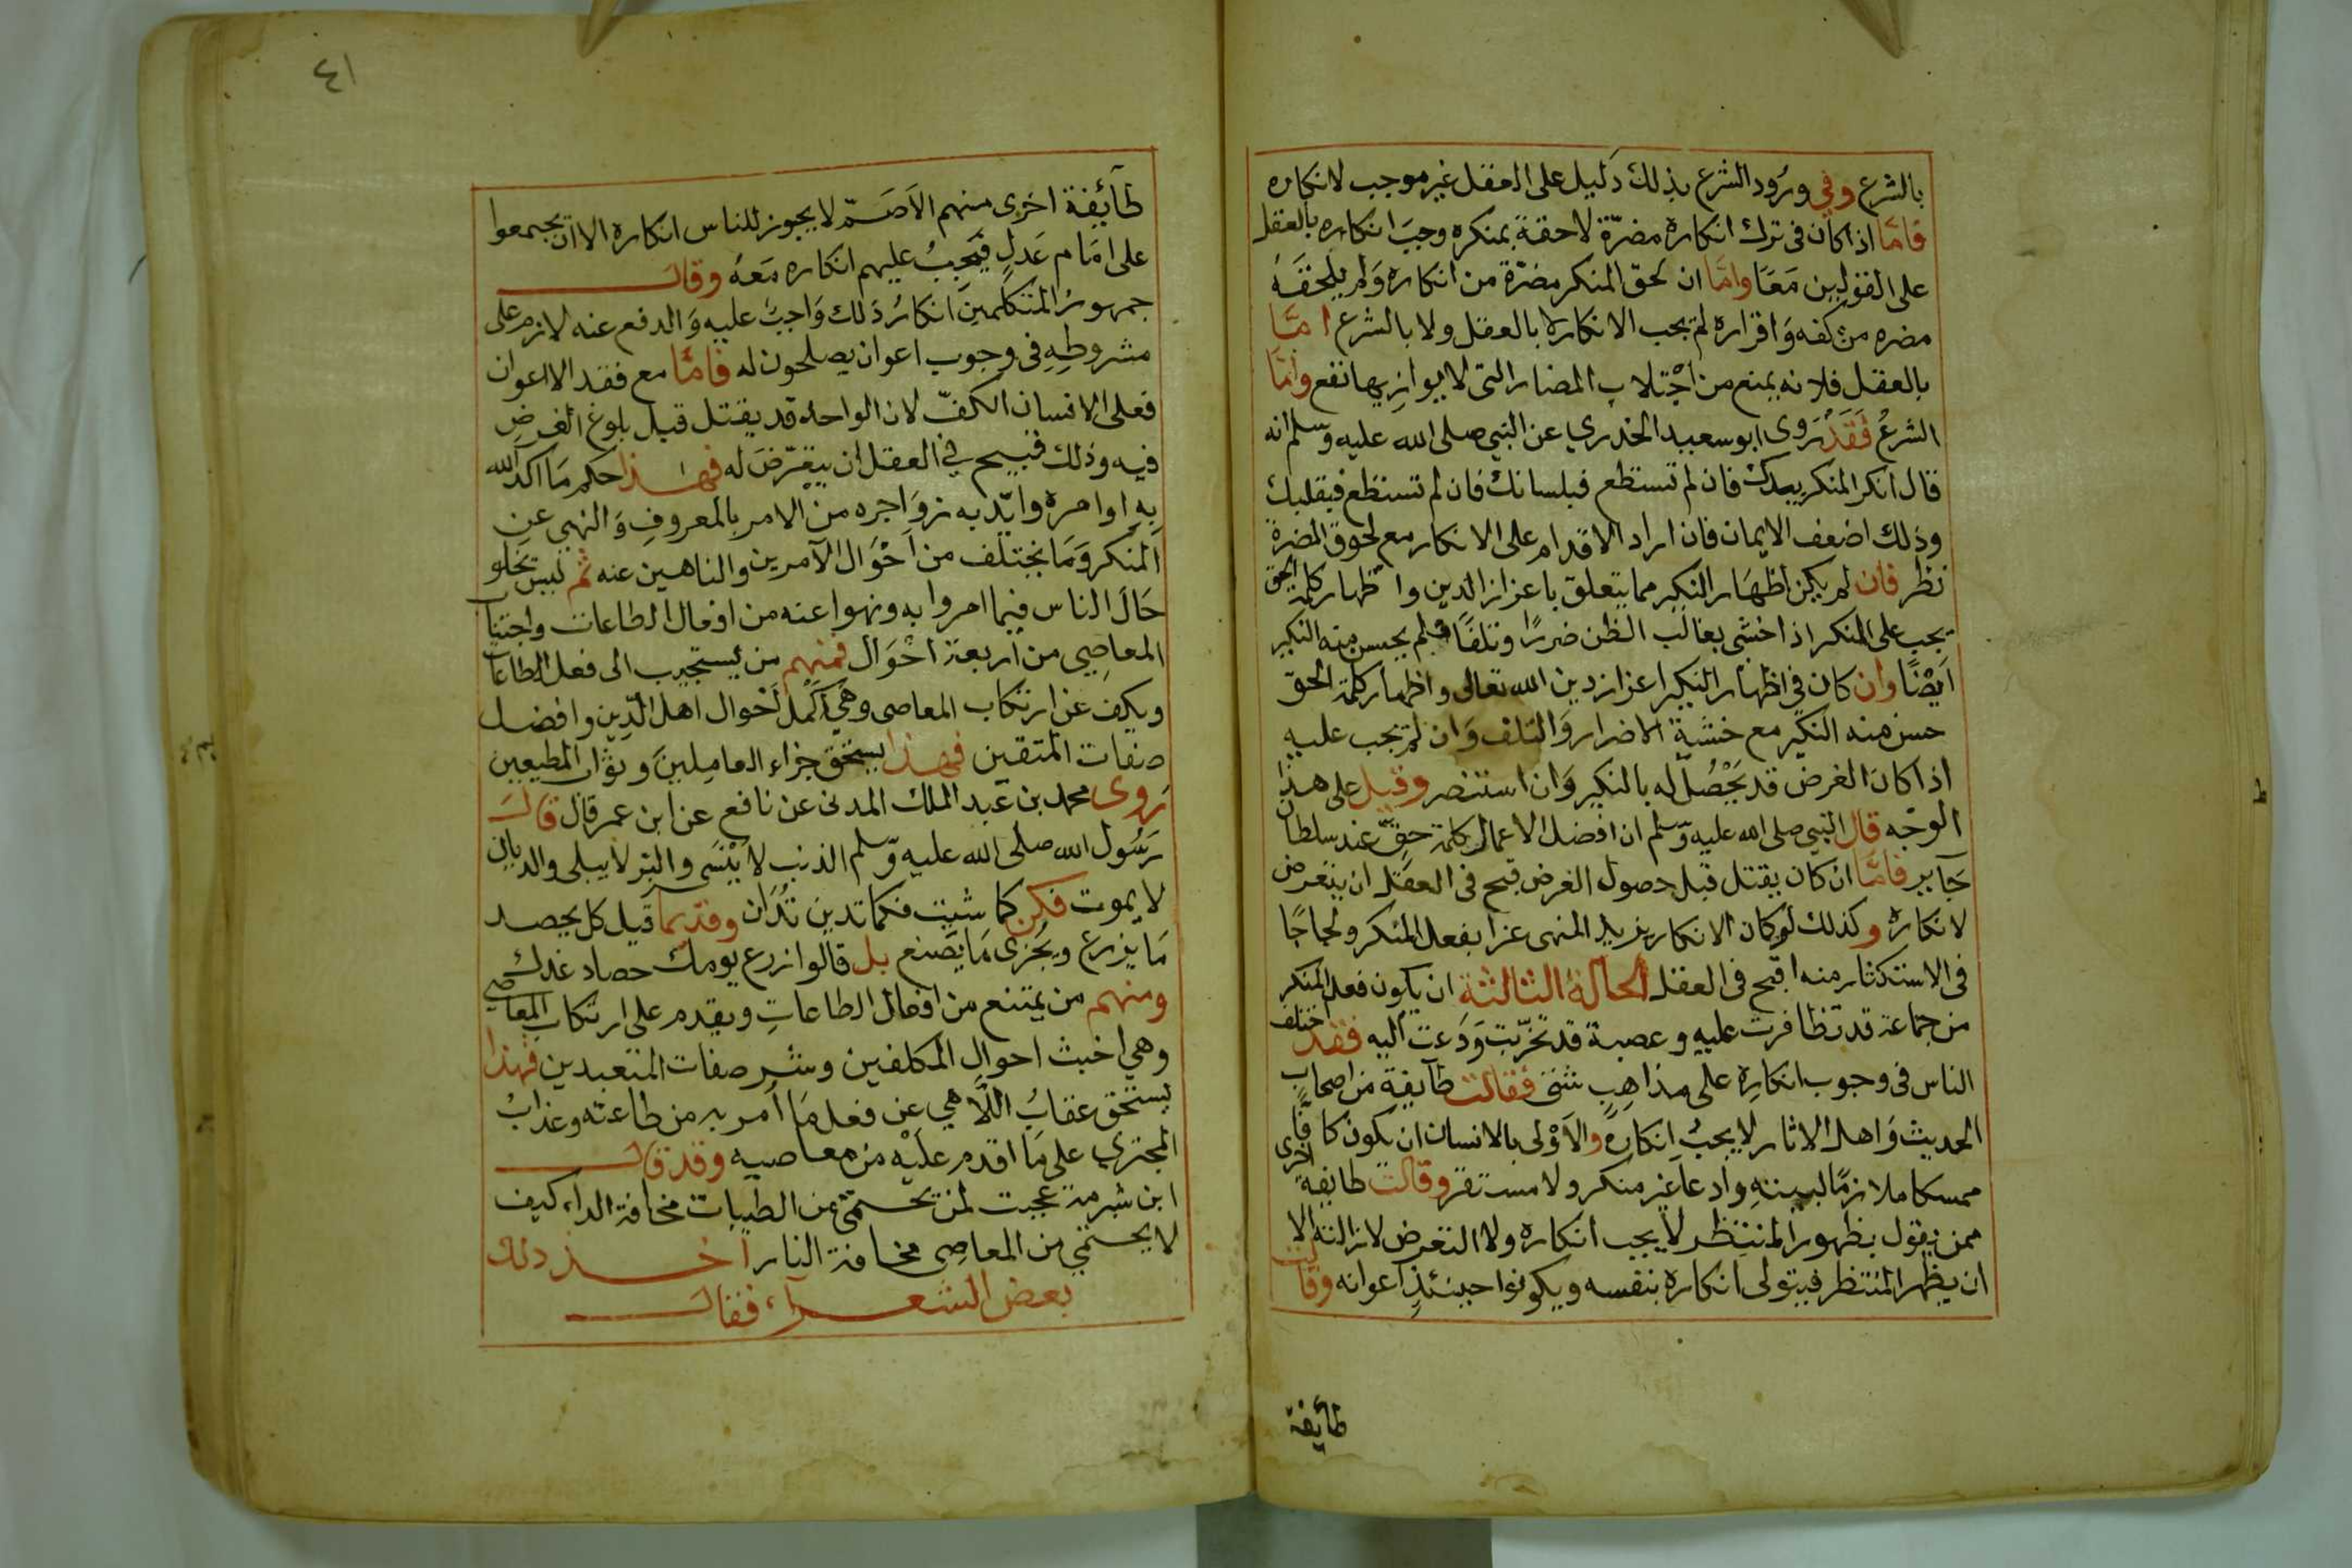 بالشرع وفي ورود الشرع بذلك دليل على العقل غير موجب لانكاره
فاما اذا كان في ترك انكاره مضرة لاحقة بمنكره وجب انكاره بالعقل
على القولين معا واما ان لحق المنكر مضرة من انكاره ولم يلحقه
مضره من كفه واقراره لم يجب الانكار لا بالعقل ولا بالشرع اما
بالعقل فلانه يمنع من اجتلاب المضار التي لا يوازيها نفع واما
الشرع فقد روى ابو سعيد الخدري عن النبي صلى الله عليه وسلم انه
قال انكر المنكر بيدك فان لم تستطع فبلسانك فان لم تستطع فبقلبك
وذلك اضعف الايمان فان اراد الاقدام على الانكار مع لحوق المضرة
نظر فان لم يكن اظهار النكير مما يتعلق باعزاز الدين واظهار كلمة الحق
يجب على المنكر اذا خشى بغالب الظن ضررا وتلفا فلم يحسن منه النكير
ايضا وان كان في اظهار النكير اعزاز دين الله تعالى واظهار كلمة الحق
حسن منه النكير مع خشية الاضرار والتلف وان لم يجب عليه
اذا كان الغرض قد يحصل له بالنكير وان استنصر وقيل على هذا
الوجه قال النبي صلى الله عليه وسلم ان افضل الاعمال كلمة حق عند سلطان
جاير فاما ان كان يقتل قبل حصول الغرض قبح في العقل ان يتعرض
لانكاره وكذلك لو كان الانكار يزيد المنهى عزا بفعل المنكر ولجاجا
في الاستكثار منه اقبح في العقل الحالة الثالثة ان يكون فعل المنكر
من جماعة قد تظافرت عليه وعصبة قد تحزبت ودعت اليه فقد اختلف
الناس في وجوب انكاره على مذاهب شتى فقالت طآيفة من اصحاب
الحديث واهل الاثار لا يجب انكاره والاولى بالانسان ان يكون كافا
ممسكا ملازما لبيته وادعا غير منكر ولا مستفز وقالت طايفة اخرى
ممن يقول بظهور المنتظر لا يجب انكاره ولا التعرض لازالته الا
ان يظهر المنتظر فيتولى انكاره بنفسه ويكونوا حينئذ اعوانه وقالت
طآيفة
٤١
طآئفة اخرى منهم الاصم لا يجوز للناس انكاره الا ان يجمعوا
على امام عدل فيجب عليهم انكاره معه وقال
جمهور المتكلمين انكار ذلك واجب عليه والدفع عنه لازم على
مشروطه في وجوب اعوان يصلحون له فاما مع فقد الاعوان
فعلى الانسان الكف لان الواحد قد يقتل قبل بلوغ الغرض
فيه وذلك قبيح في العقل ان يتعرض له فهذا حكم ما اكد الله
به اوامره وايد به زواجره من الامر بالمعروف والنهي عن
المنكر وما يختلف من احوال الآمرين والناهين عنه ثم ليس تخلو
حال الناس فيما امروا به ونهوا عنه من افعال الطاعات واجتناب
المعاصي من اربعة احوال فمنهم من يستجيب الى فعل الطاعات
ويكف عن ارتكاب المعاصي وهي اكمل احوال اهل الدين وافضل
صفات المتقين فهذا يستحق جزاء العاملين وثواب المطيعين
روى محمد بن عبد الملك المدني عن نافع عن ابن عمر قال قال
رسول الله صلى الله عليه وسلم الذنب لا ينسى والبر لا يبلى والديان
لا يموت فكن كما شيت فكما تدين تدان وقد بما قيل كل يحصد
ما يزرع ويجزى ما يصنع بل قالوا زرع يومك حصاد غدك
ومنهم من يمتنع من افعال الطاعات ويقدم على ارتكاب المعاصي
وهي اخبث احوال المكلفين وشر صفات المتعبدين فهذا
يستحق عقاب اللاهي عن فعل ما امر به من طاعته وعذاب
المجتري على ما اقدم عليه من معاصيه وقد قال
ابن شبرمة عجبت لمن يحتمي من الطيبات مخافة الداء كيف
لا يحتمي من المعاصي مخافة النار اخذ ذلك
بعض الشعرآء فقال